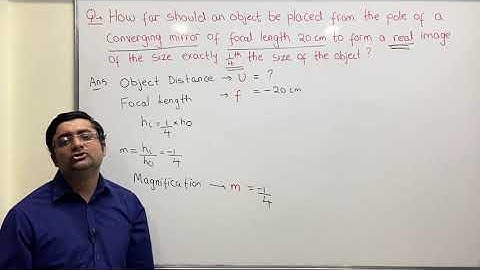 Q. How far should an object be placed from the pole of a
Converging mirror of focal length 20cm to form a real image
of the size exactly 1/4th the size of the object ?
Ans: Object Distance → U = ?
Focal Length → f = -20cm
hi = 1/4 × ho
m = hi/ho = -1/4
Magnification → m = -1/4